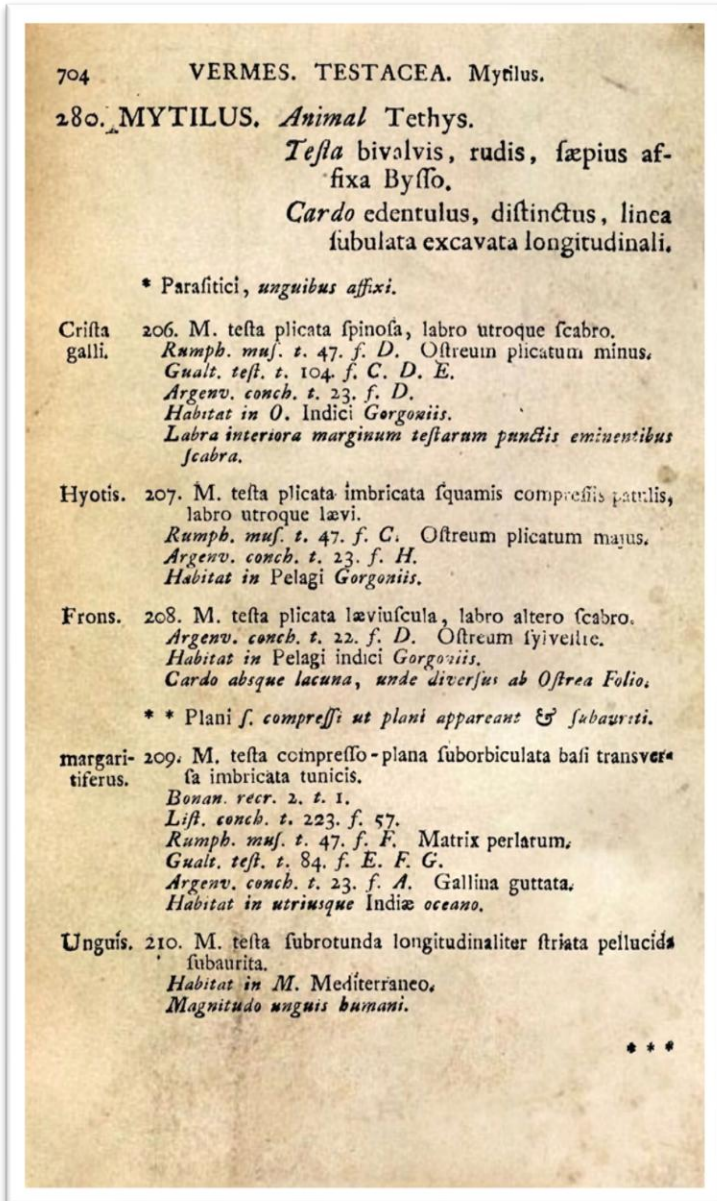 704 VERMES. TESTACEA. Mytilus.
280. MYTILUS. Animal Tethys.
Teſta bivalvis, rudis, ſæpius af-
fixa Byſſo.
Cardo edentulus, diſtinctus, linea
ſubulata excavata longitudinali.
* Paraſitici, unguibus affixi.
Criſta galli. 206. M. teſta plicata ſpinoſa, labro utroque ſcabro.
Rumph. muſ. t. 47. f. D. Oſtreum plicatum minus.
Gualt. teſt. t. 104. f. C. D. E.
Argenv. conch. t. 23. f. D.
Habitat in O. Indici Gorgoniis.
Labra interiora marginum teſtarum punctis eminentibus
ſcabra.
Hyotis. 207. M. teſta plicata imbricata ſquamis compreſſis patulis,
labro utroque lævi.
Rumph. muſ. t. 47. f. C. Oſtreum plicatum majus.
Argenv. conch. t. 23. f. H.
Habitat in Pelagi Gorgoniis.
Frons. 208. M. teſta plicata læviuſcula, labro altero ſcabro.
Argenv. conch. t. 22. f. D. Oſtreum ſylveſtre.
Habitat in Pelagi indici Gorgoniis.
Cardo absque lacuna, unde diverſus ab Oſtrea Folio.
* * Plani ſ. compreſſi ut plani appareant & ſubauriti.
margari-tiferus. 209. M. teſta compreſſo-plana ſuborbiculata baſi transver-
ſa imbricata tunicis.
Bonan. recr. 2. t. 1.
Liſt. conch. t. 223. f. 57.
Rumph. muſ. t. 47. f. F. Matrix perlarum.
Gualt. teſt. t. 84. f. E. F. G.
Argenv. conch. t. 23. f. A. Gallina guttata.
Habitat in utriusque Indiæ oceano.
Unguis. 210. M. teſta ſubrotunda longitudinaliter ſtriata pellucida
ſubaurita.
Habitat in M. Mediterraneo.
Magnitudo unguis humani.
* * *